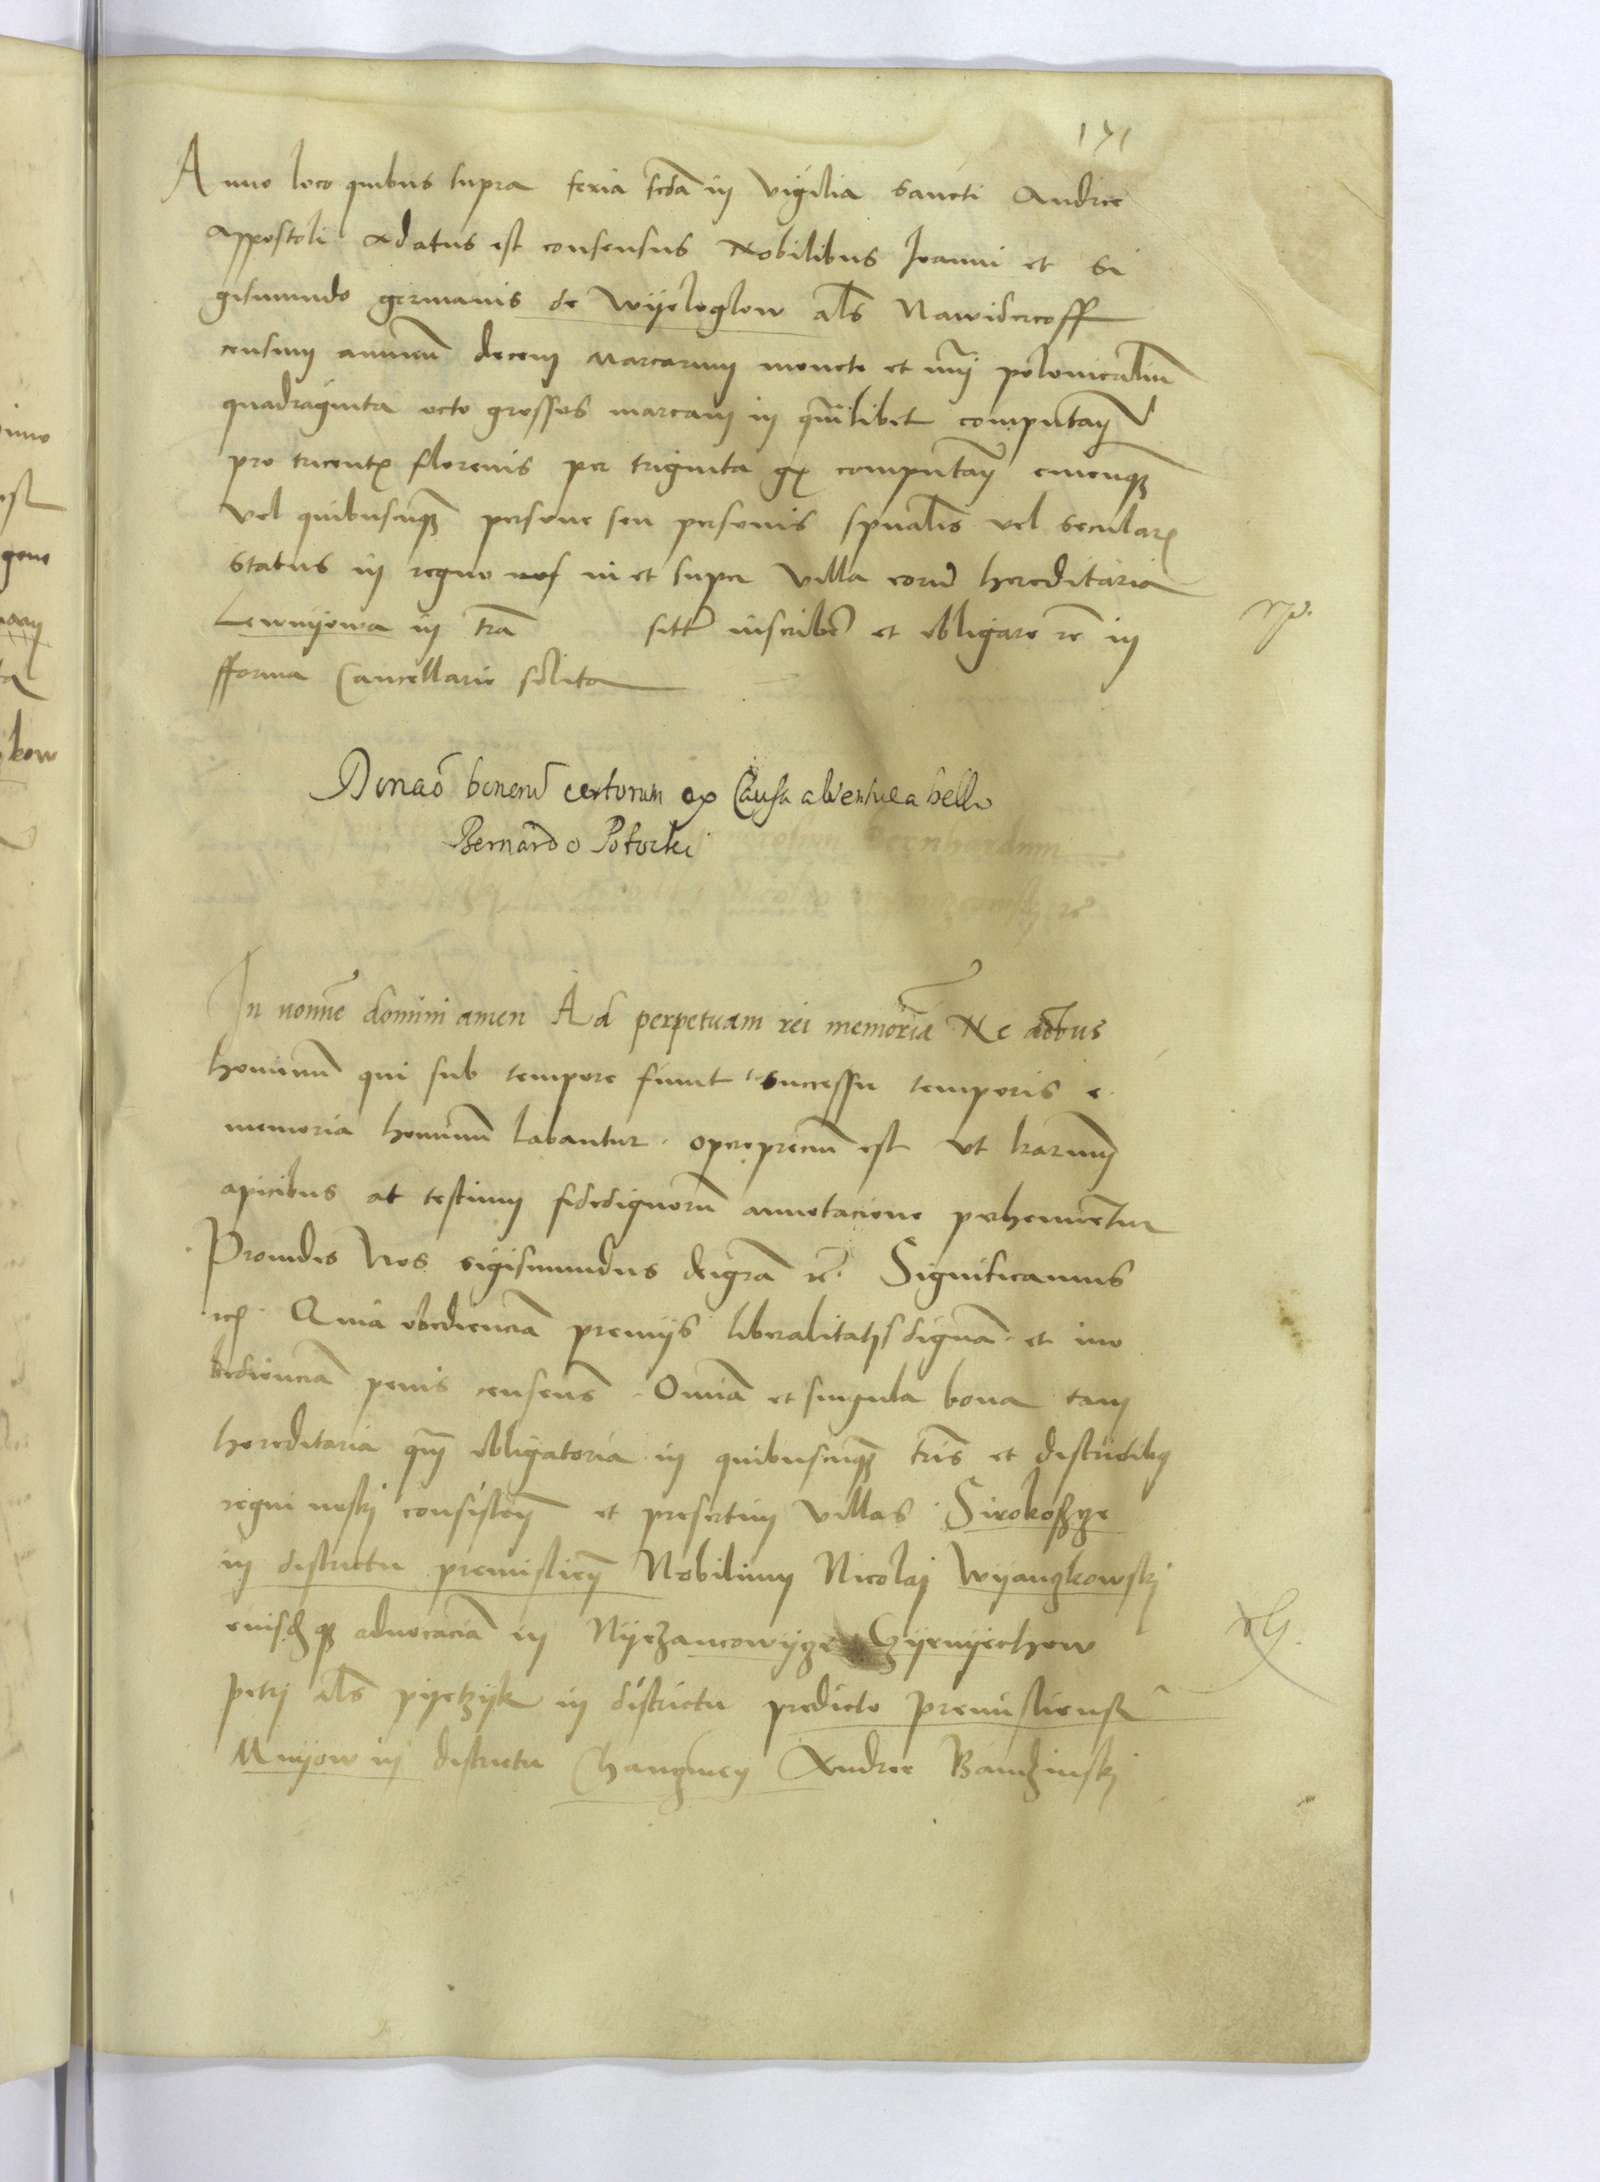 171
Anno loco quibus supra feria scda in vigilia sancti Andree
Appostoli datus est consensus Nobilibus Joanni et Si
gismundo germanis de Wyeloglow als Nawidercoff
censum annuum decem marcarum monete et nri polonicalium
quadraginta octo grossos marcam in qualibet computan
pro tricentis florenis per triginta gr computan cuicunq
vel quibuscunq persone seu personis spualis vel secular
status in regno nos in et super villa eorum hereditaria
Lewnyowa in tra sitt inscribere et obligare rc in
fforma Cancellarie solita
rp.
Donaco bonorum certorum ex Causa
bello
Bernardo Potocki
In nomine domini amen Ad perpetuam rei memoriam Ne actus
hominum qui sub tempore fiunt successu temporis e
memoria hominum labantur. opereprecium est ut lrarum
apicibus at testium fidedignorum annotacione perhennentur
Proindes Nos sigismundus deigra rc. Significamus
rc. Quia obedienciam premijs liberalitatis dignam et ino
bedienciam penis censens. Omnia et singula bona tam
hereditaria qm obligatoria in quibuscunq tris et districtibus
regni nostri consisten et presertim villas Sirokoszye
in districtu premislien Nobilium Nicolai Wyanzkowskj
eiusdemq advocaciam in Nyezancowyze Czyemyerchow
petri als pyetzyk in districtu predicto premisliensi
Mnyow in districtu Chanczinen Andree Bandzinskj